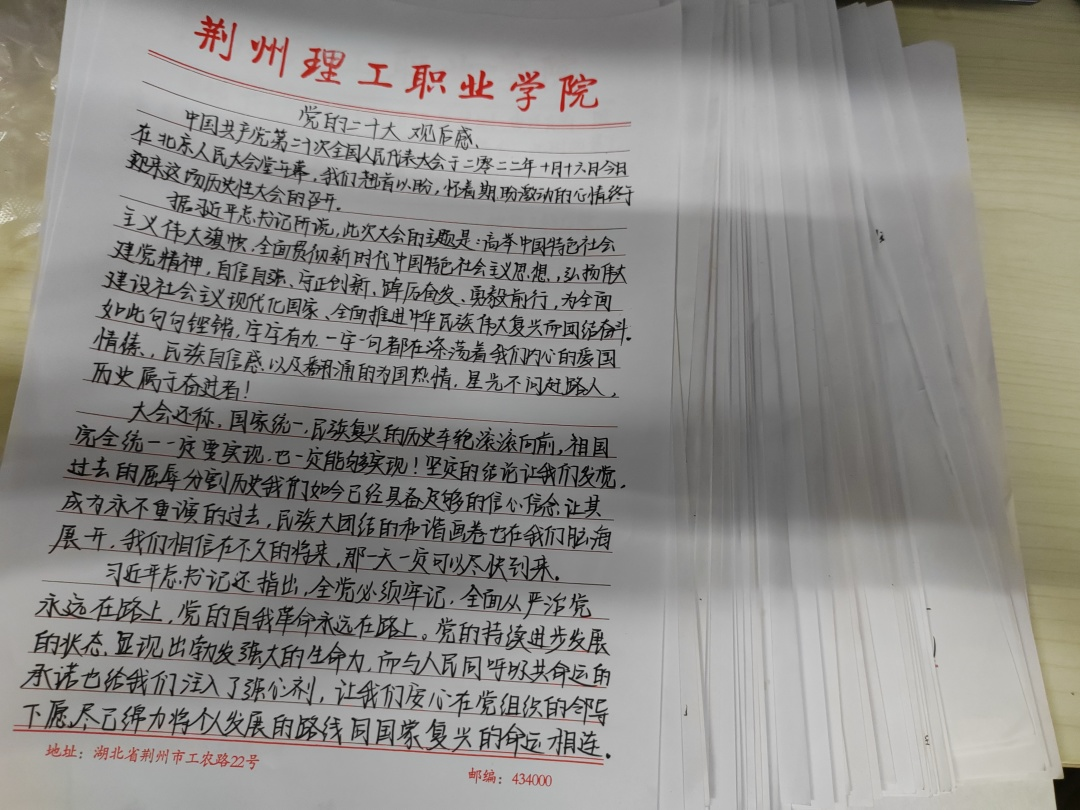 荆州理工职业学院
党的二十大 观后感、
中国共产党第二十次全国人民代表大会于二零二二年十月十六日今日
在北京人民大会堂开幕，我们翘首以盼，怀着期盼激动的心情终于
迎来这场历史性大会的召开。
据习近平总书记所说，此次大会的主题是：高举中国特色社会
主义伟大旗帜、全面贯彻新时代中国特色社会主义思想，弘扬伟大
建党精神，自信自强、守正创新、踔厉奋发、勇毅前行，为全面
建设社会主义现代化国家、全面推进中华民族伟大复兴而团结奋斗。
如此句句铿锵，字字有力，一字一句都在涤荡着我们内心的爱国
情愫、民族自信感以及翻涌的为国热情，星光不问赶路人，
历史属于奋进者！
大会还称，国家统一，民族复兴的历史车轮滚滚向前，祖国
完全统一一定要实现，也一定能够实现！坚定的结论让我们发觉，
过去的屈辱分割历史我们如今已经具备足够的信心信念让其
成为永不重演的过去，民族大团结的和谐画卷也在我们脑海
展开，我们相信在不久的将来，那一天一定可以尽快到来。
习近平总书记还指出，全党必须牢记，全面从严治党
永远在路上，党的自我革命永远在路上。党的持续进步发展
的状态，显现出勃发强大的生命力，而与人民同呼吸共命运的
承诺也给我们注入了强心剂，让我们安心在党组织的领导
下愿尽己绵力将个人发展的路线同国家复兴的命运相连。
地址：湖北省荆州市工农路22号
邮编：434000